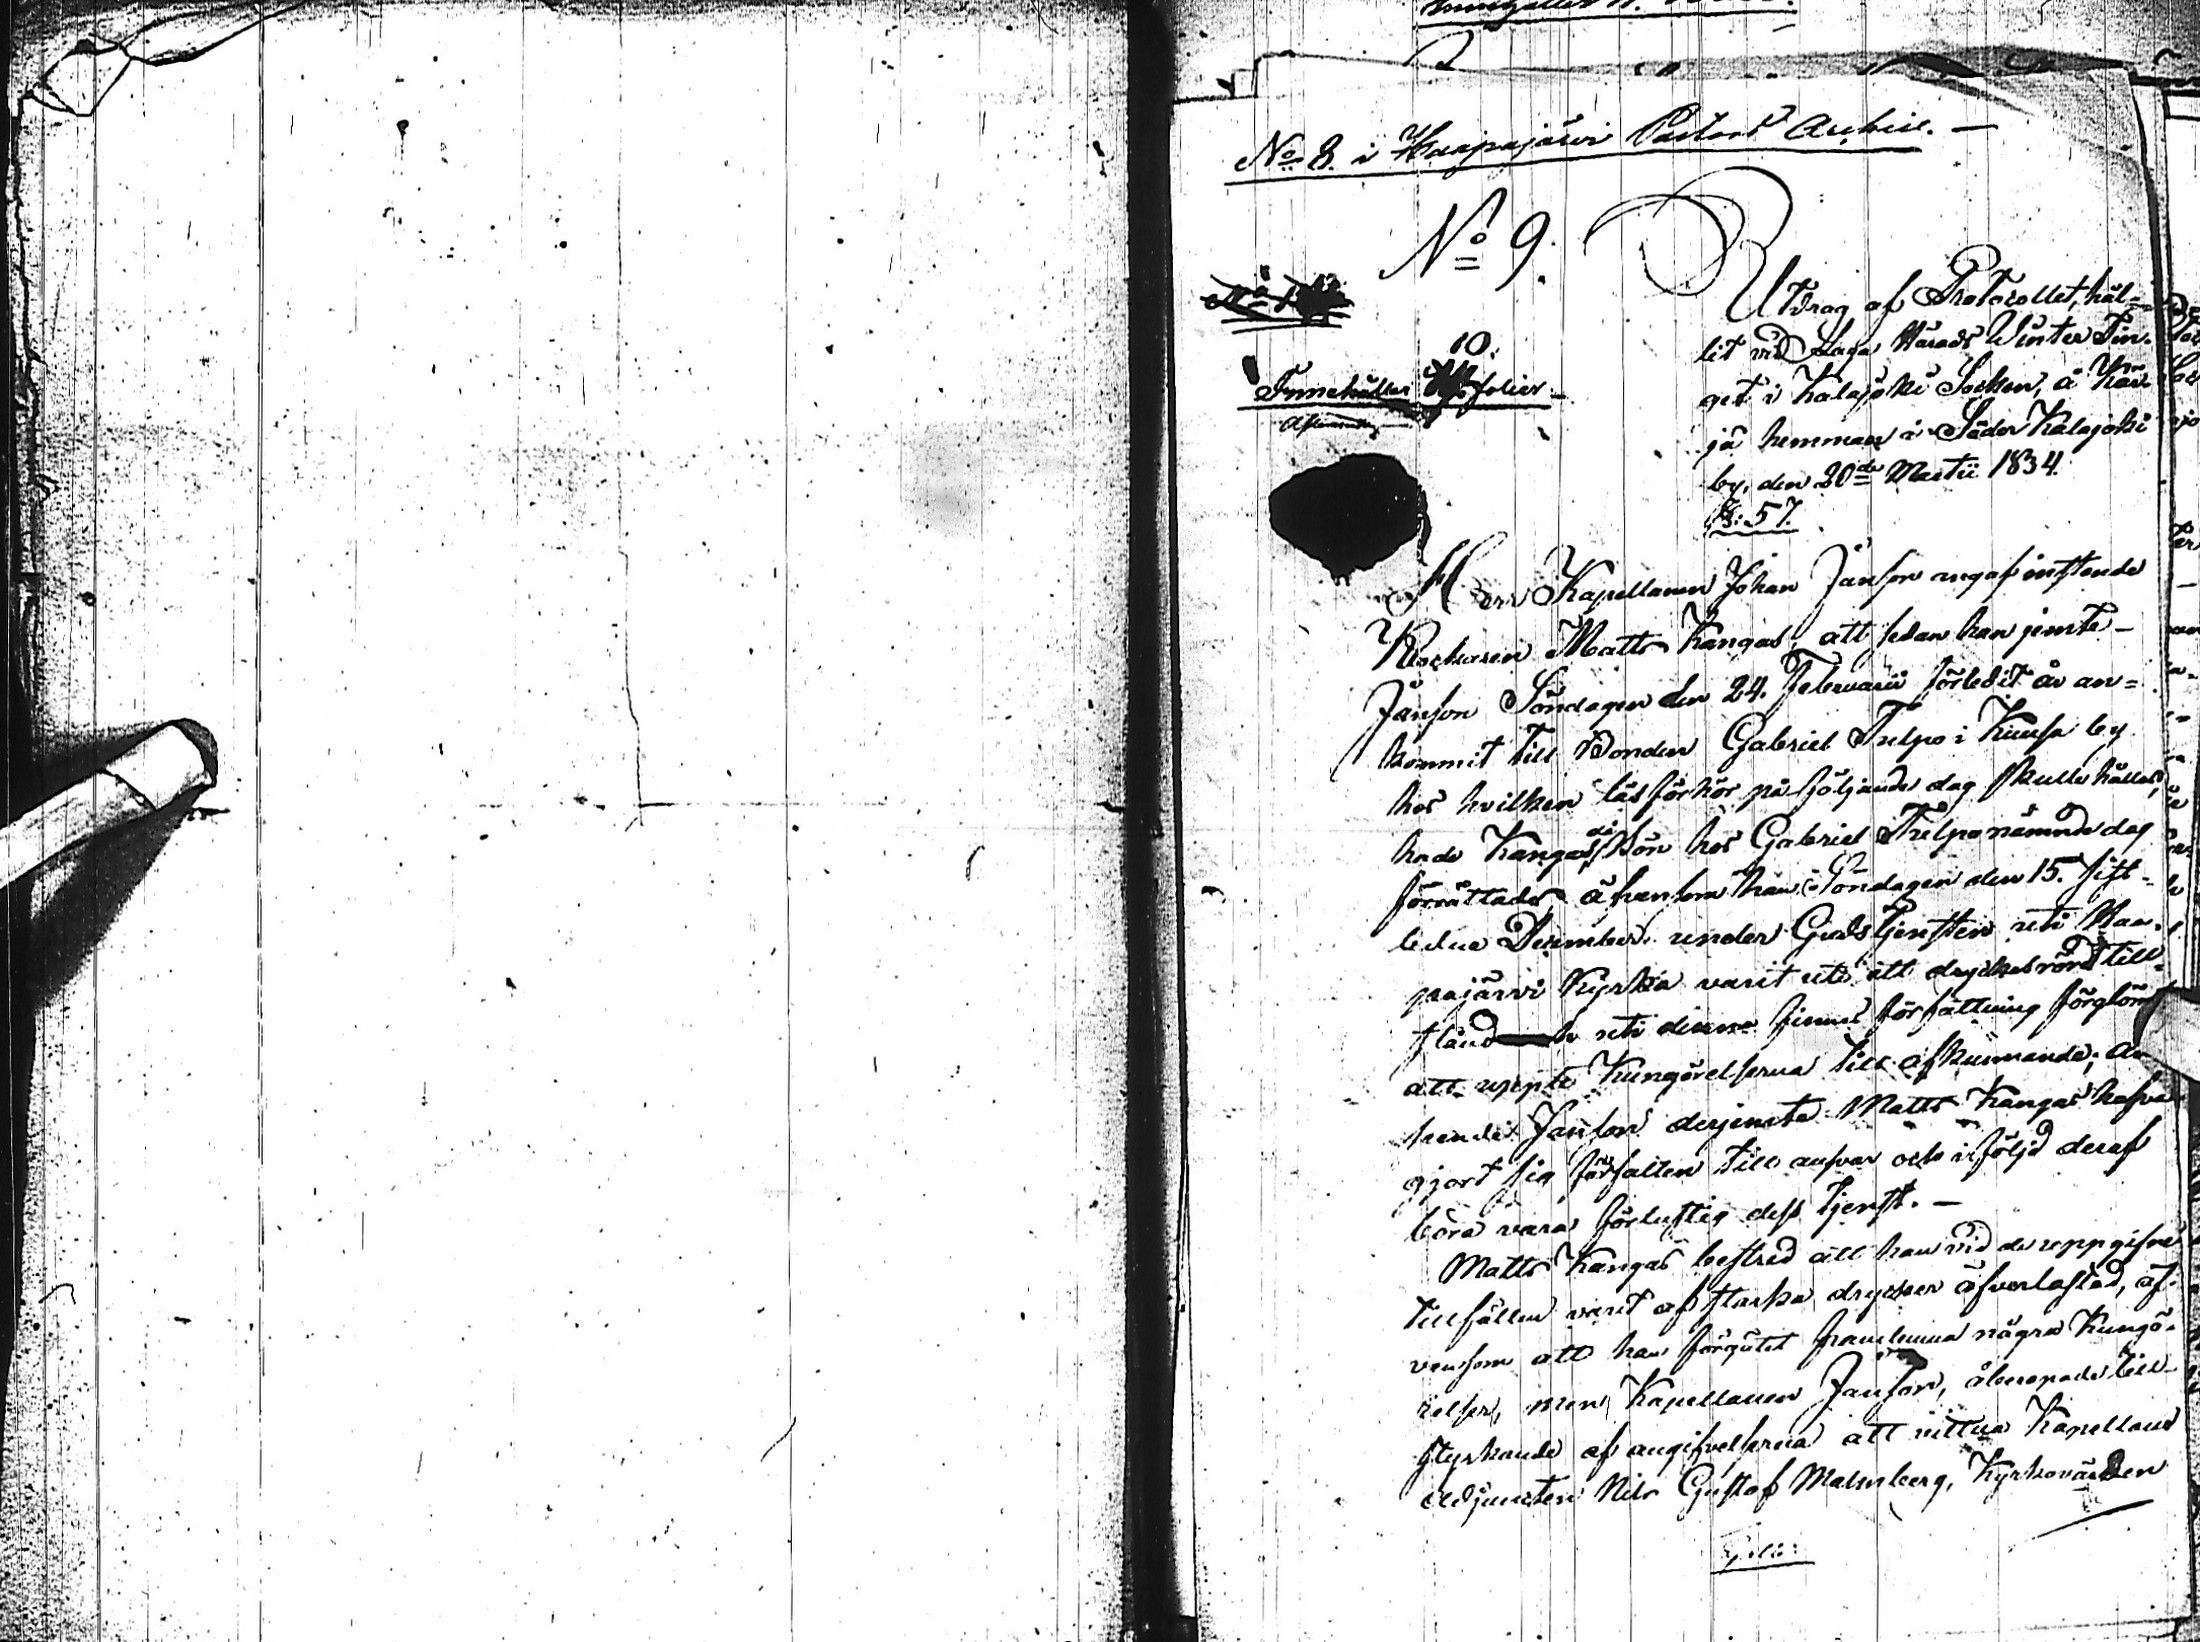 No 8. i Haapajärvi Pastors Archiv. —
No 9.
10.
Innehåller folier
Utdrag af Protocollet, hål-
lit vid Laga Härads Winter Tin-
get i Kalajoki Socken, å
jä hemman i Söder Kalajoki
by, den 20de Martii 1834.
§: 57.
Herr Kapellanen Johan Janson angaf instende
Klockaren Matts Kangas, att sedan han jemte
Janson Söndagen den 24. Februarii förledit år an=
kommit till Bonden Gabriel Tulpo i Kuusa by
hos hvilken läsförhör på följande dag skulle hållas,
hade Kangas, då bön hos Gabriel Tulpo nämnde dag
förrättades, äfvensom han Söndagen den 15. sist-
ledne December under Gudstjensten uti Haa-
pajärvi Kyrka varit uti ett dryckesrördt till-
stånd uti denna sinnes författning förglömt
att uppte Kungörelserna till afkunnande; an
seende Janson derjemte Matts Kangas hafva
gjort sig förfallen till ansvar och i följd deraf
böra vara förlustig dess tjenst. —
Matts Kangas bestred att han vid de uppgifne
tillfällen varit af starka drycker öfverlastad, äf-
vensom att han förgätit framlemna några Kungö-
relser, men Kapellanen Janson, åberopade till
styrkande af angifvelserna att vittna Kapellans
Adjuncten Nils Gustaf Malmberg, Kyrkovärden